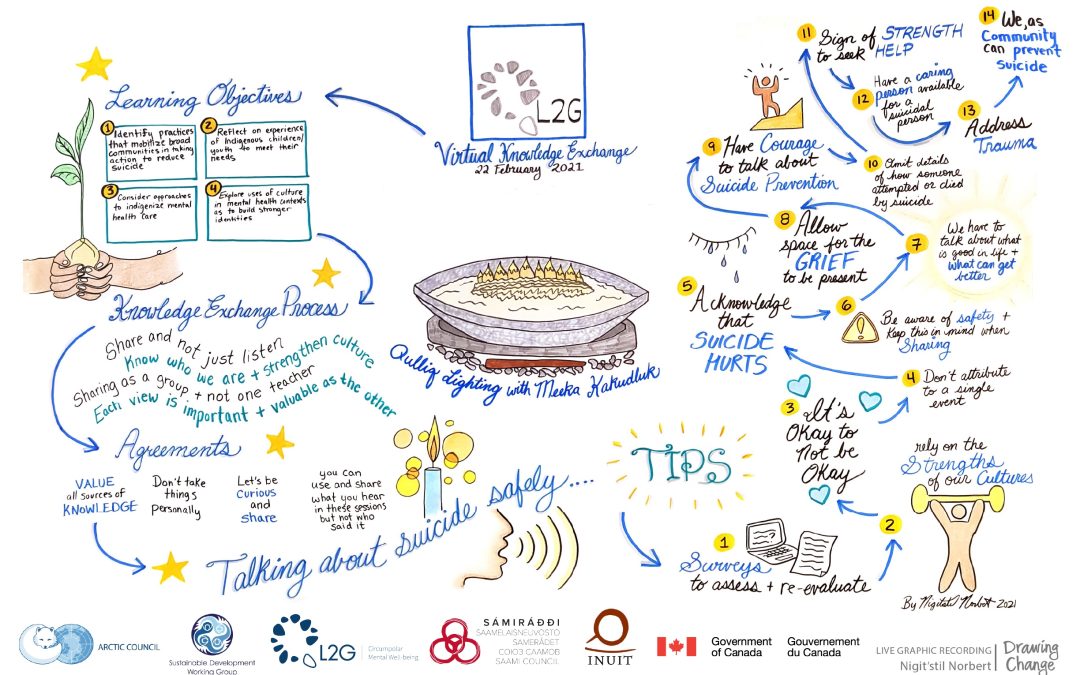 L2G
Virtual Knowledge Exchange
22 February 2021
Learning Objectives
1
Identify practices
that mobilize broad
communities in taking
action to reduce
suicide
2
Reflect on experience
of Indigenous children/
youth to meet their
needs
3
Consider approaches
to indigenize mental
health care
4
Explore uses of culture
in mental health contexts
as to build stronger
identities
Knowledge Exchange Process
Share and not just listen
Know who we are + strengthen culture
Sharing as a group + not one teacher
Each view is important + valuable as the other
Qulliq Lighting with Meeka Kakudluk
Agreements
VALUE
all sources of
KNOWLEDGE
Don't take
things
personally
Let's be
curious
and
share
you can
use and share
what you hear
in these sessions
but not who
said it
Talking about suicide safely....
TIPS
1
Surveys
to assess + re-evaluate
2
rely on the
Strengths
of our Cultures
3
It's
Okay to
Not be
Okay
4
Don't attribute
to a single
event
5
Acknowledge
that
SUICIDE
HURTS
6
Be aware of safety +
Keep this in mind when
Sharing
7
We have to
talk about what
is good in life +
what can get
better
8
Allow
space for the
GRIEF
to be present
9
Have Courage
to talk about
Suicide Prevention
10
Omit details
of how someone
attempted or died
by suicide
11
Sign of STRENGTH
to seek HELP
12
Have a caring
person available
for a
suicidal
person
13
Address
Trauma
14
We, as
Community
can prevent
suicide
By Nigit'stil Norbert 2021
ARCTIC COUNCIL
Sustainable Development
Working Group
L2G
Circumpolar
Mental Well-being
SÁMIRÁĐĐI
SAAMELAISNEUVOSTO
SAMERÅDET
СОЮЗ СААМОВ
SAAMI COUNCIL
INUIT
Government
of Canada
Gouvernement
du Canada
LIVE GRAPHIC RECORDING
Nigit'stil Norbert
Drawing
Change